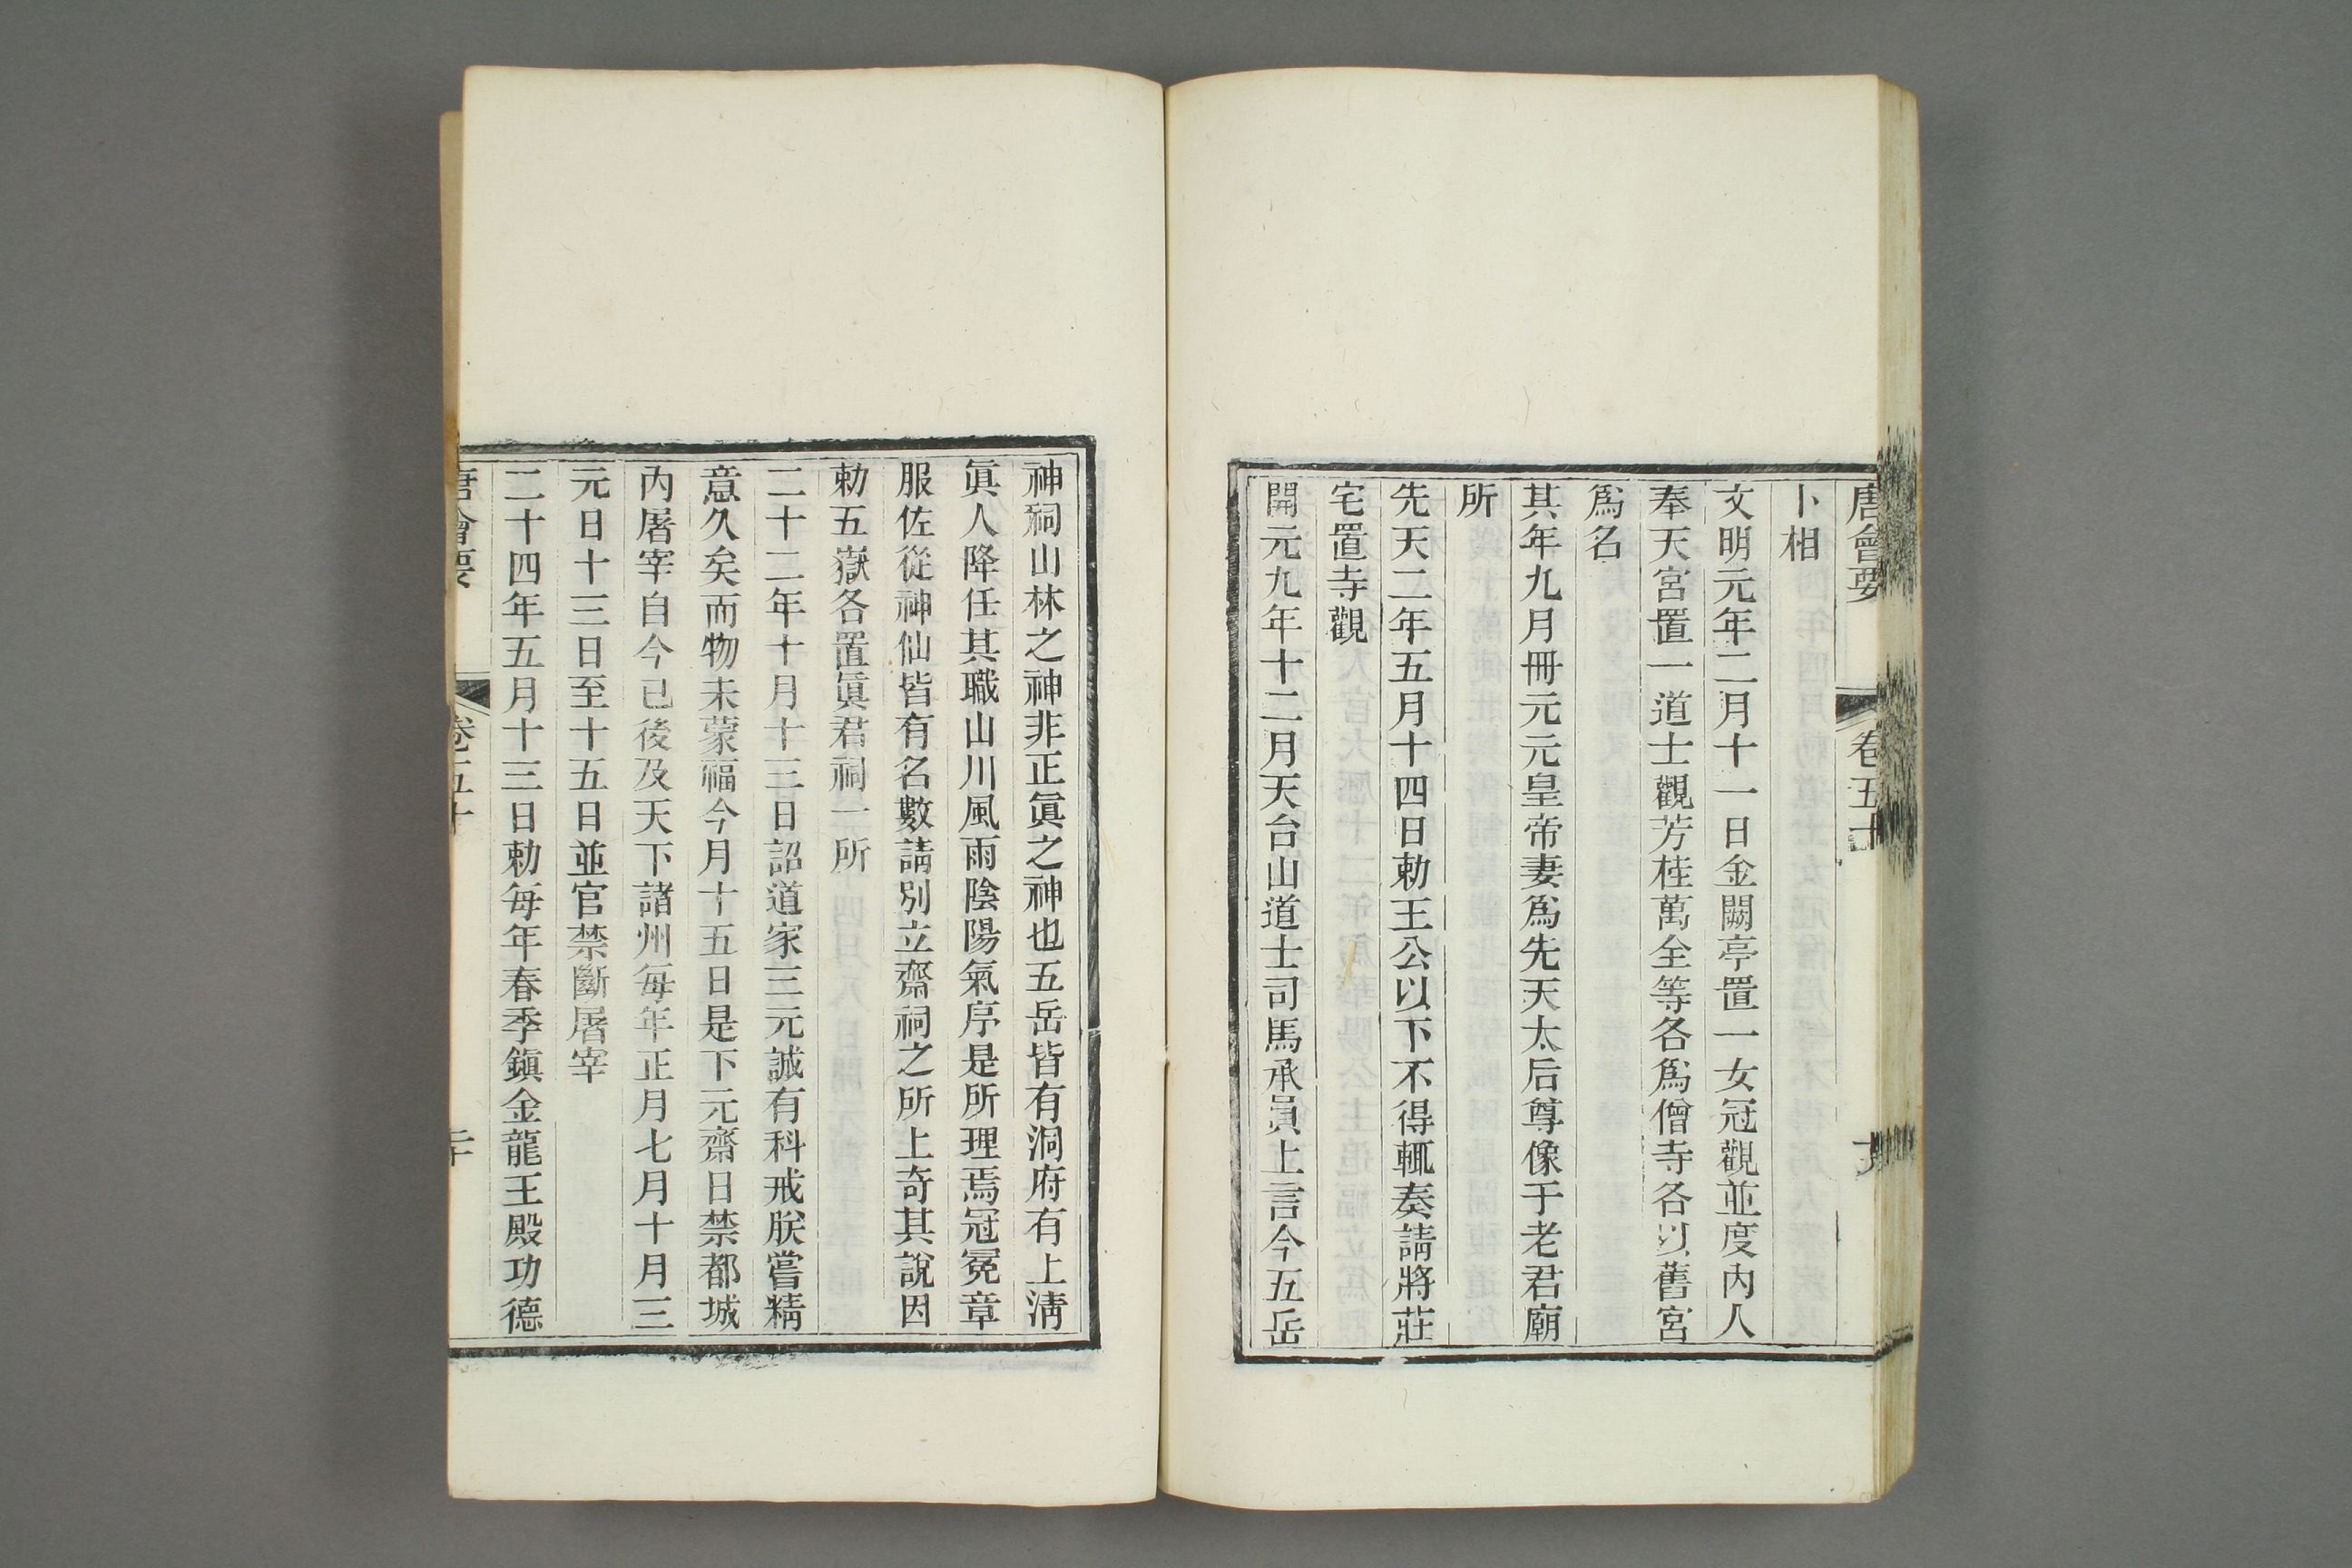 唐會要 卷五十
卜相
文明元年二月十一日金闕亭置一女冠觀並度內人
奉天宮置一道士觀芳桂萬全等各爲僧寺各以舊宮
爲名
其年九月冊元元皇帝妻爲先天太后尊像于老君廟
所
先天二年五月十四日勅王公以下不得輒奏請將莊
宅置寺觀
開元九年十二月天台山道士司馬承員上言今五岳
神祠山林之神非正眞之神也五岳皆有洞府有上淸
眞人降任其職山川風雨陰陽氣序是所理焉冠冕章
服佐從神仙皆有名數請別立齋祠之所上奇其說因
勅五嶽各置眞君祠一所
二十二年十月十三日詔道家三元誠有科戒朕嘗精
意久矣而物未蒙福今月十五日是下元齋日禁都城
內屠宰自今已後及天下諸州每年正月七月十月三
元日十三日至十五日並官禁斷屠宰
二十四年五月十三日勅每年春季鎭金龍王殿功德
唐會要 卷五十 二十